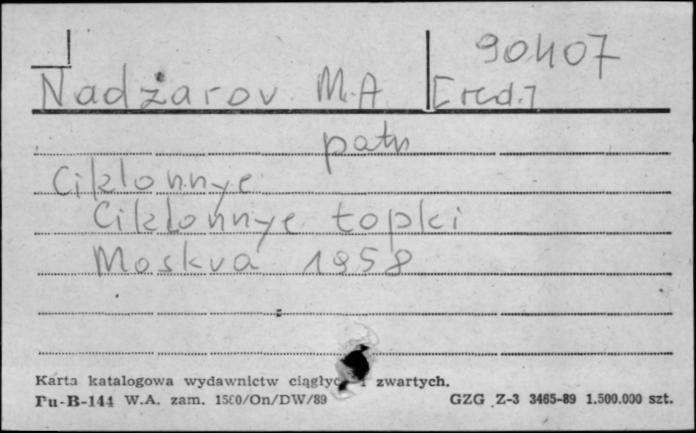 90407
Nadżarov M.A. [red.]
patrz
Ciklonnye
Ciklonnye topki
Moskva 1958
Karta katalogowa wydawnictw ciągłyc i zwartych.
Pu-B-144 W.A. zam. 1580/On/DW/89 GZG Z-3 3465-89 1.500.000 szt.